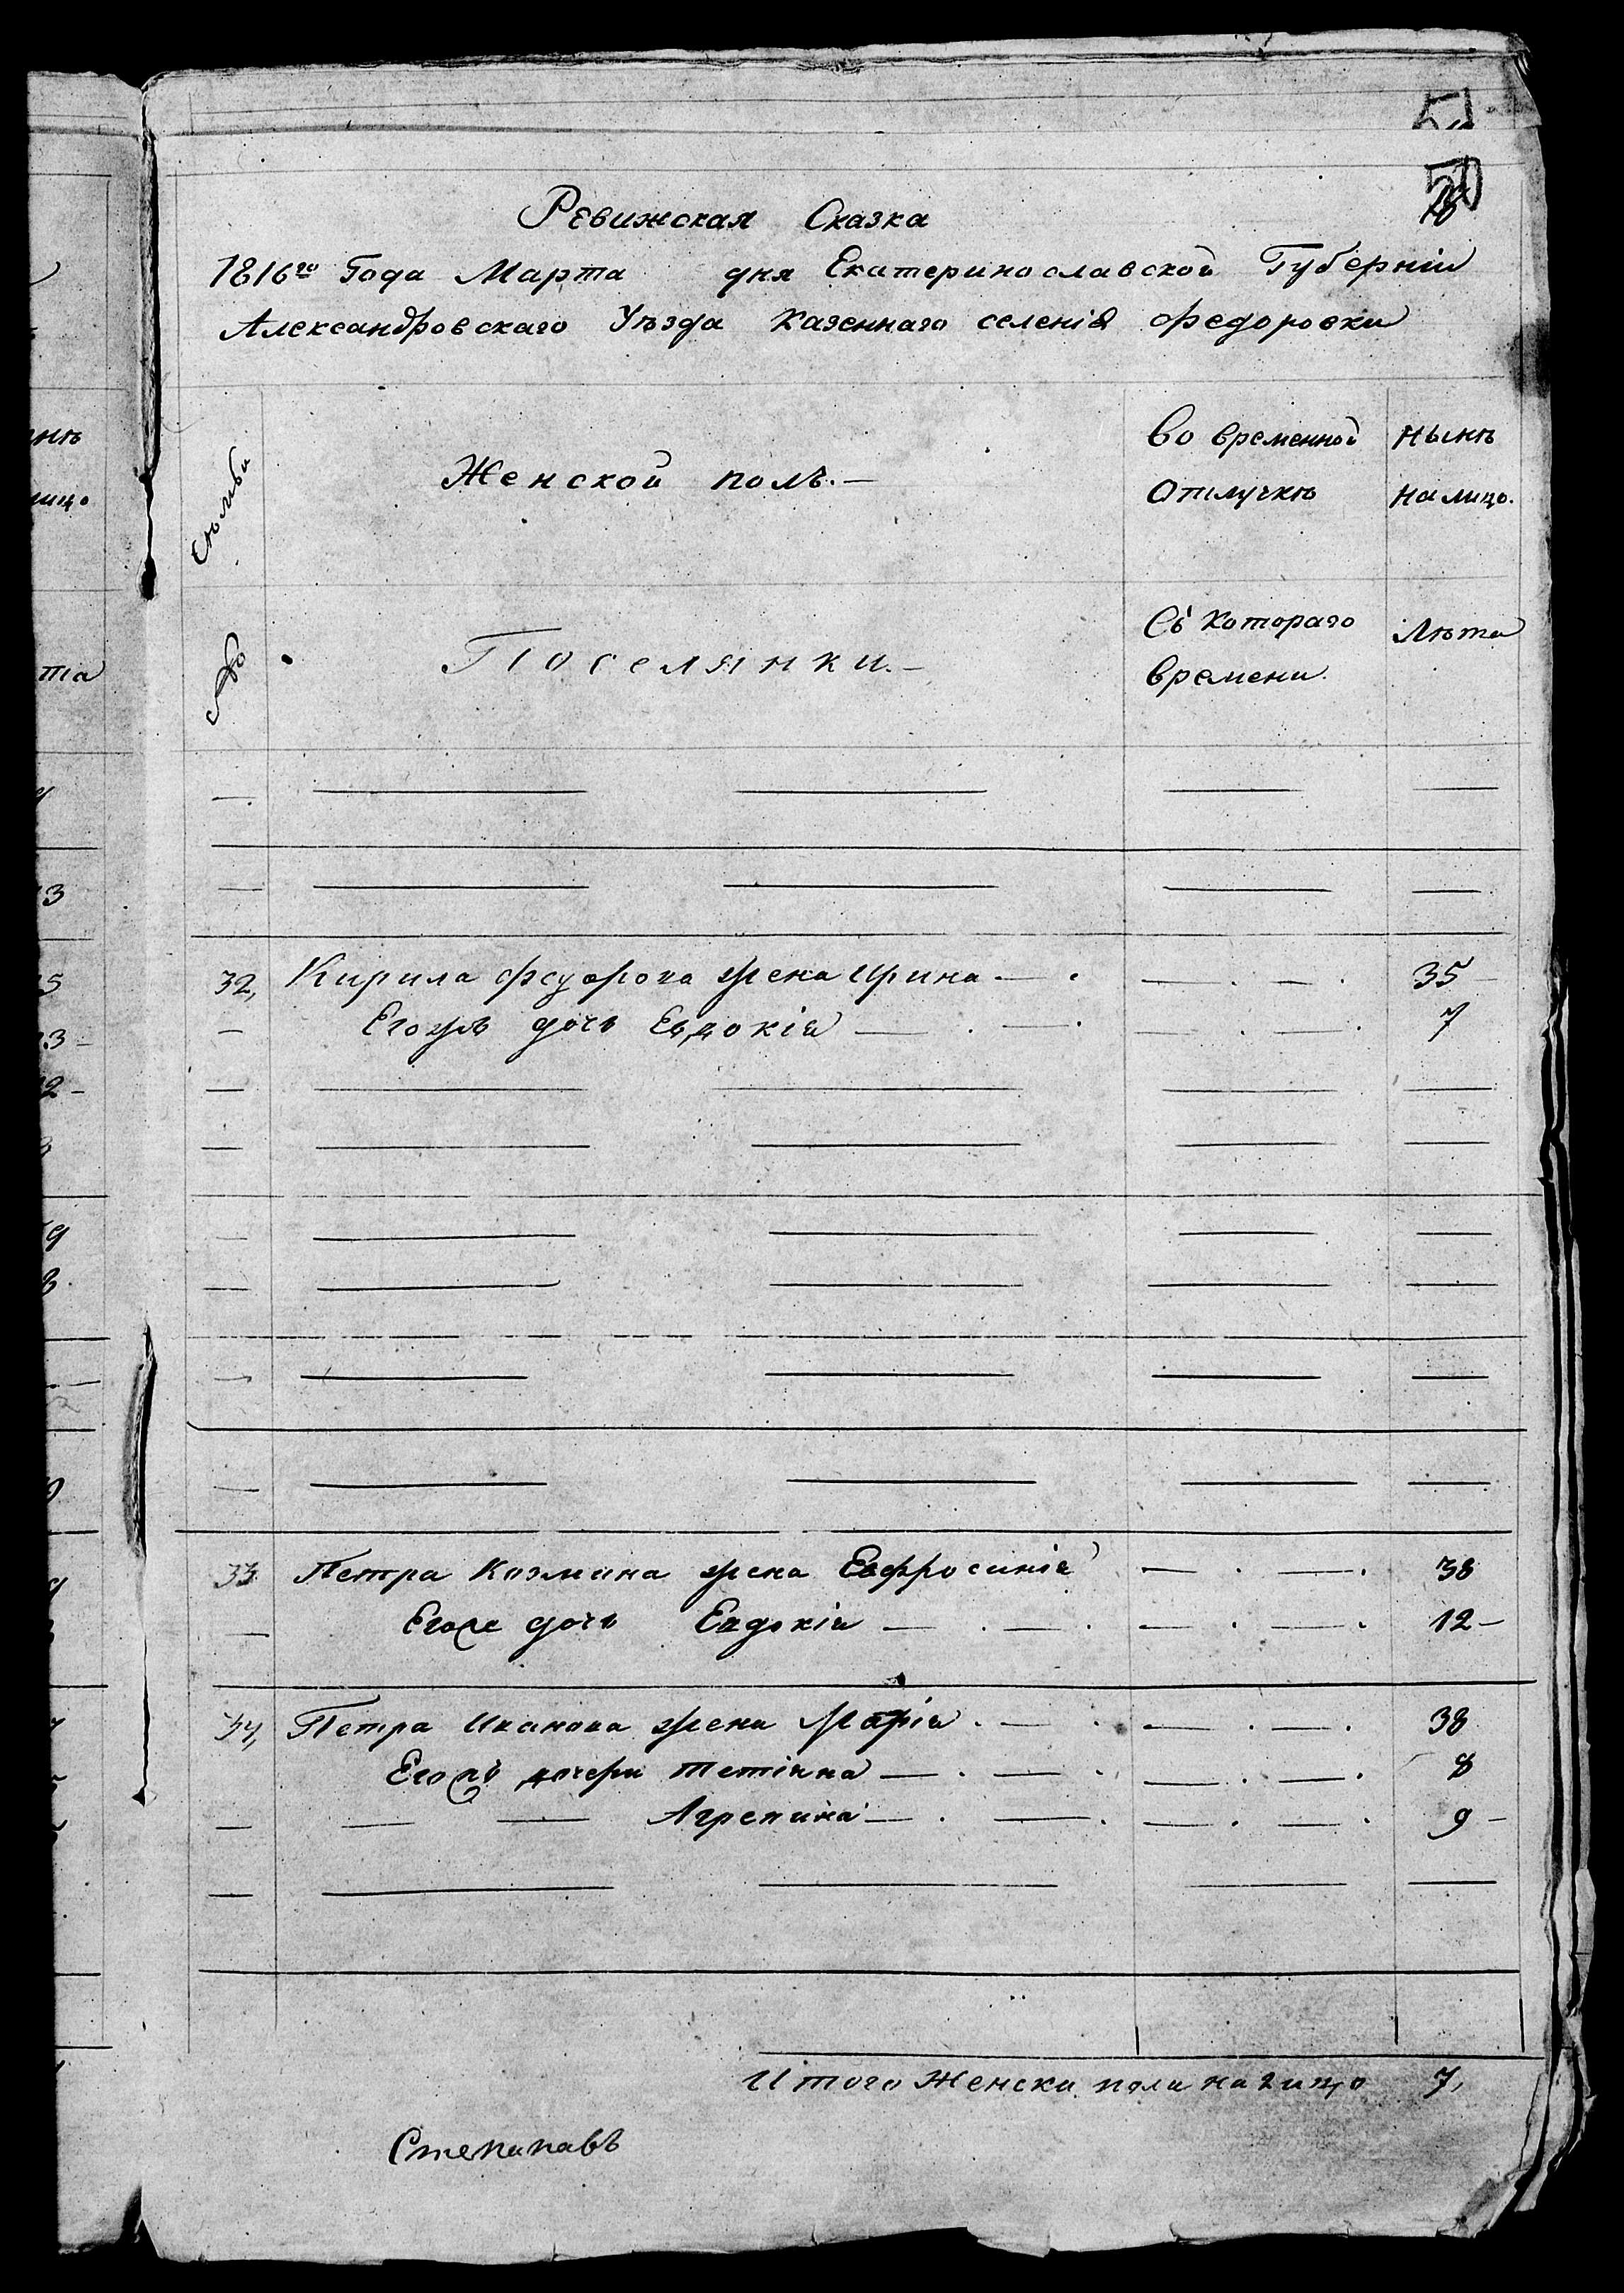 50
Ревижская Сказка
1816го Года Марта дня Екатеринославской Губерніи
Александровскаго Уѣзда Казеннаго селенія Федоровки
Семьи
№
Женской полъ.—
Во временной Отлучкѣ
Нынѣ на лицо.
Поселянки.—
Съ Котораго времени.
Лѣта
32, Кирила Федорова жена Ирина — 35
Егожъ дочь Евдокія — 7
33 Петра Козмина жена Евфросинія — 38
Егоже дочь Евдокія — 12
34, Петра Иванова жена Марія — 38
Егожъ дочери — 8
Агрепина — 9
Итого Женска пола на лицо 7,